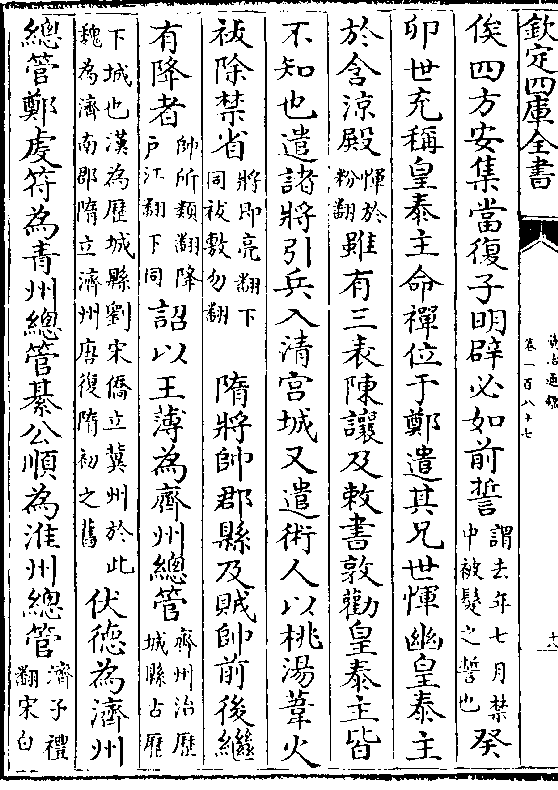 欽定四庫全書
資治通鑑
卷一百八十七
俟四方安集當復子明辟必如前誓謂去年七月禁中被髮之誓也癸
卯世充稱皇泰主命禪位于鄭遣其兄世惲幽皇泰主
於含涼殿惲於粉翻雖有三表陳讓及敕書敦勸皇泰主皆
不知也遣諸將引兵入清宮城又遣術人以桃湯葦火
祓除禁省將即亮翻下同祓敷勿翻 隋將帥郡縣及賊帥前後繼
有降者帥所類翻降户江翻下同詔以王薄為齊州總管齊州治歷城縣占歷
下城也漢為歷城縣劉宋僑立冀州於此魏為濟南郡隋立濟州唐復隋初之舊伏德為濟州
總管鄭虔符為青州總管綦公順為淮州總管濟子禮翻宋白